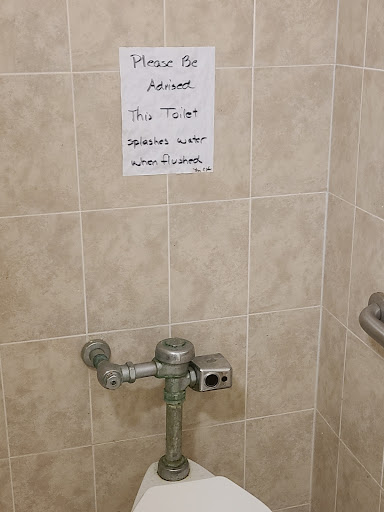 Please Be
Advised
This Toilet
splashes water
when flushed